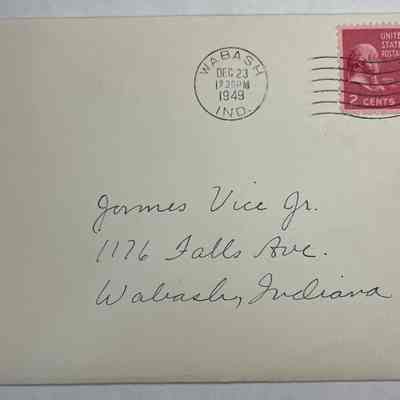 WABASH
DEC 23
12 30 PM
1949
IND.
UNITED
STATES
POSTAGE
2 CENTS
James Vice Jr.
1176 Falls Ave.
Wabash, Indiana